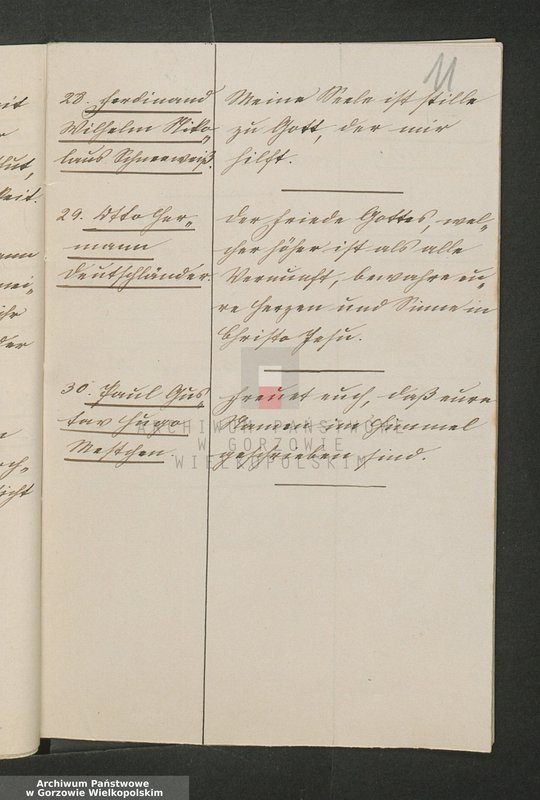 11
28. Ferdinand
Wilhelm Niko-
laus Schneeweiß.
Meine Seele ist stille
zu Gott, der mir
hilft.
29. Otto Her-
mann
Deutschländer.
Der Friede Gottes, wel-
cher höher ist als alle
Vernunft, bewahre eu-
re Herzen und Sinne in
Christo Jesu.
30. Paul Gus-
tav Hugo
Mettchen.
Freuet euch, daß eure
Namen im Himmel
geschrieben sind.
ARCHIWUM PAŃSTWOWE
W GORZOWIE
WIELKOPOLSKIM
Archiwum Państwowe
w Gorzowie Wielkopolskim